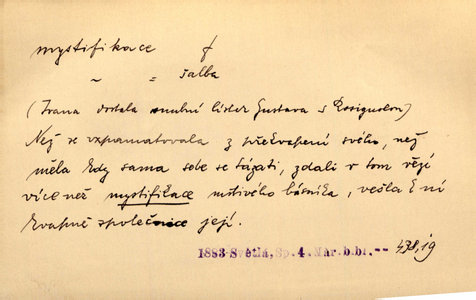 mystifikace f
~ = šalba
(Ivana dostala snubní lístek Gustava s Rosignolem)
Než se vzpamatovala z překvapení svého, než
měla kdy sama sebe se tázati, zdali v tom vězí
více než mystifikace mstivého básníka, vešla k ní
kvapně společnice její.
1883 Světlá, Sp. 4. Nár. b. br. -- 438,19